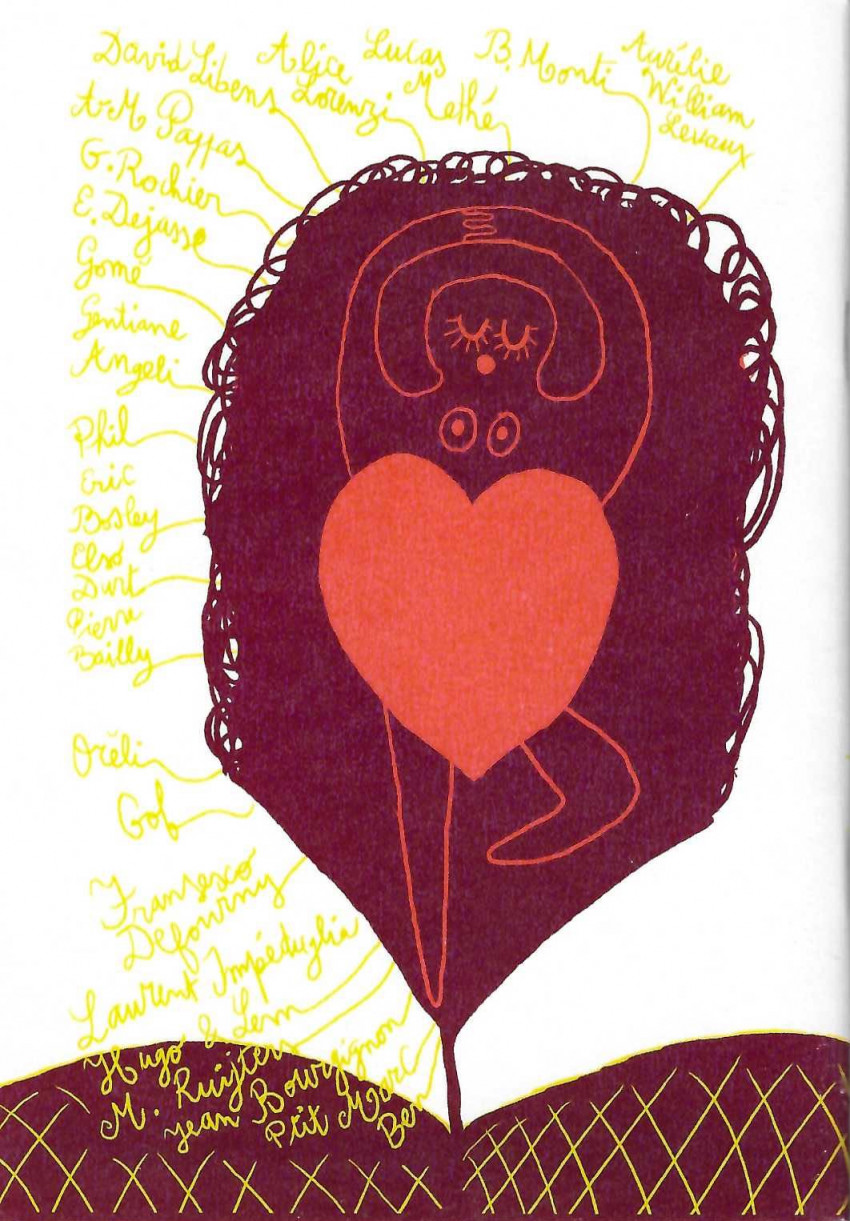 David Libens
Alice
Lorenzi
Lucas
Mathé
B. Monti
Aurélie
William
Levaux
A-M Pappas
G. Rochier
E. Dejasse
Gomé
Gentiane
Angeli
Phil
Eric
Bosley
Elso
Durt
Pierre
Bailly
Oréli
Gob
Fransesco
Defourny
Laurent Impéduglia
Hugo & Lenn
M. Ruijters
Jean Bourgignon
Ptit Marc
Ben